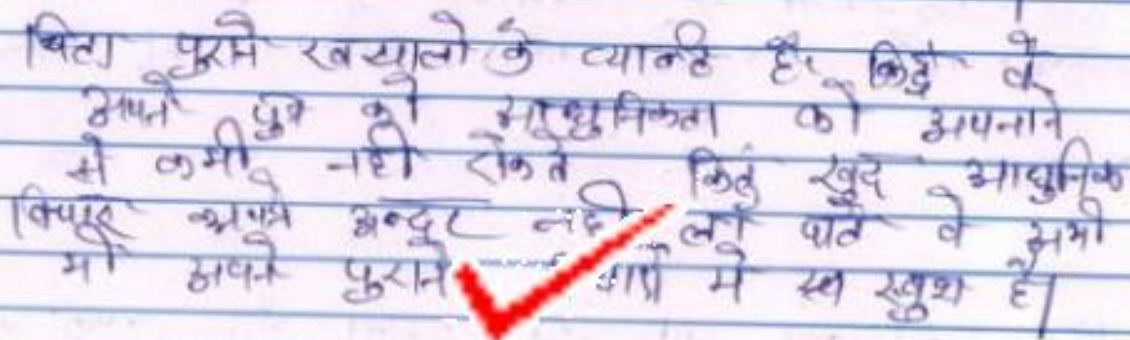 पिता पुराने ख्यालो के व्यक्ति है। किंतु वे
अपने पुत्र को आधुनिकता को अपनाने
से कभी नही रोकते किंतु खुद आधुनिक
विचार अपने अन्दर नही ला पाते वे अभी
भी अपने पुराने में खुश है।